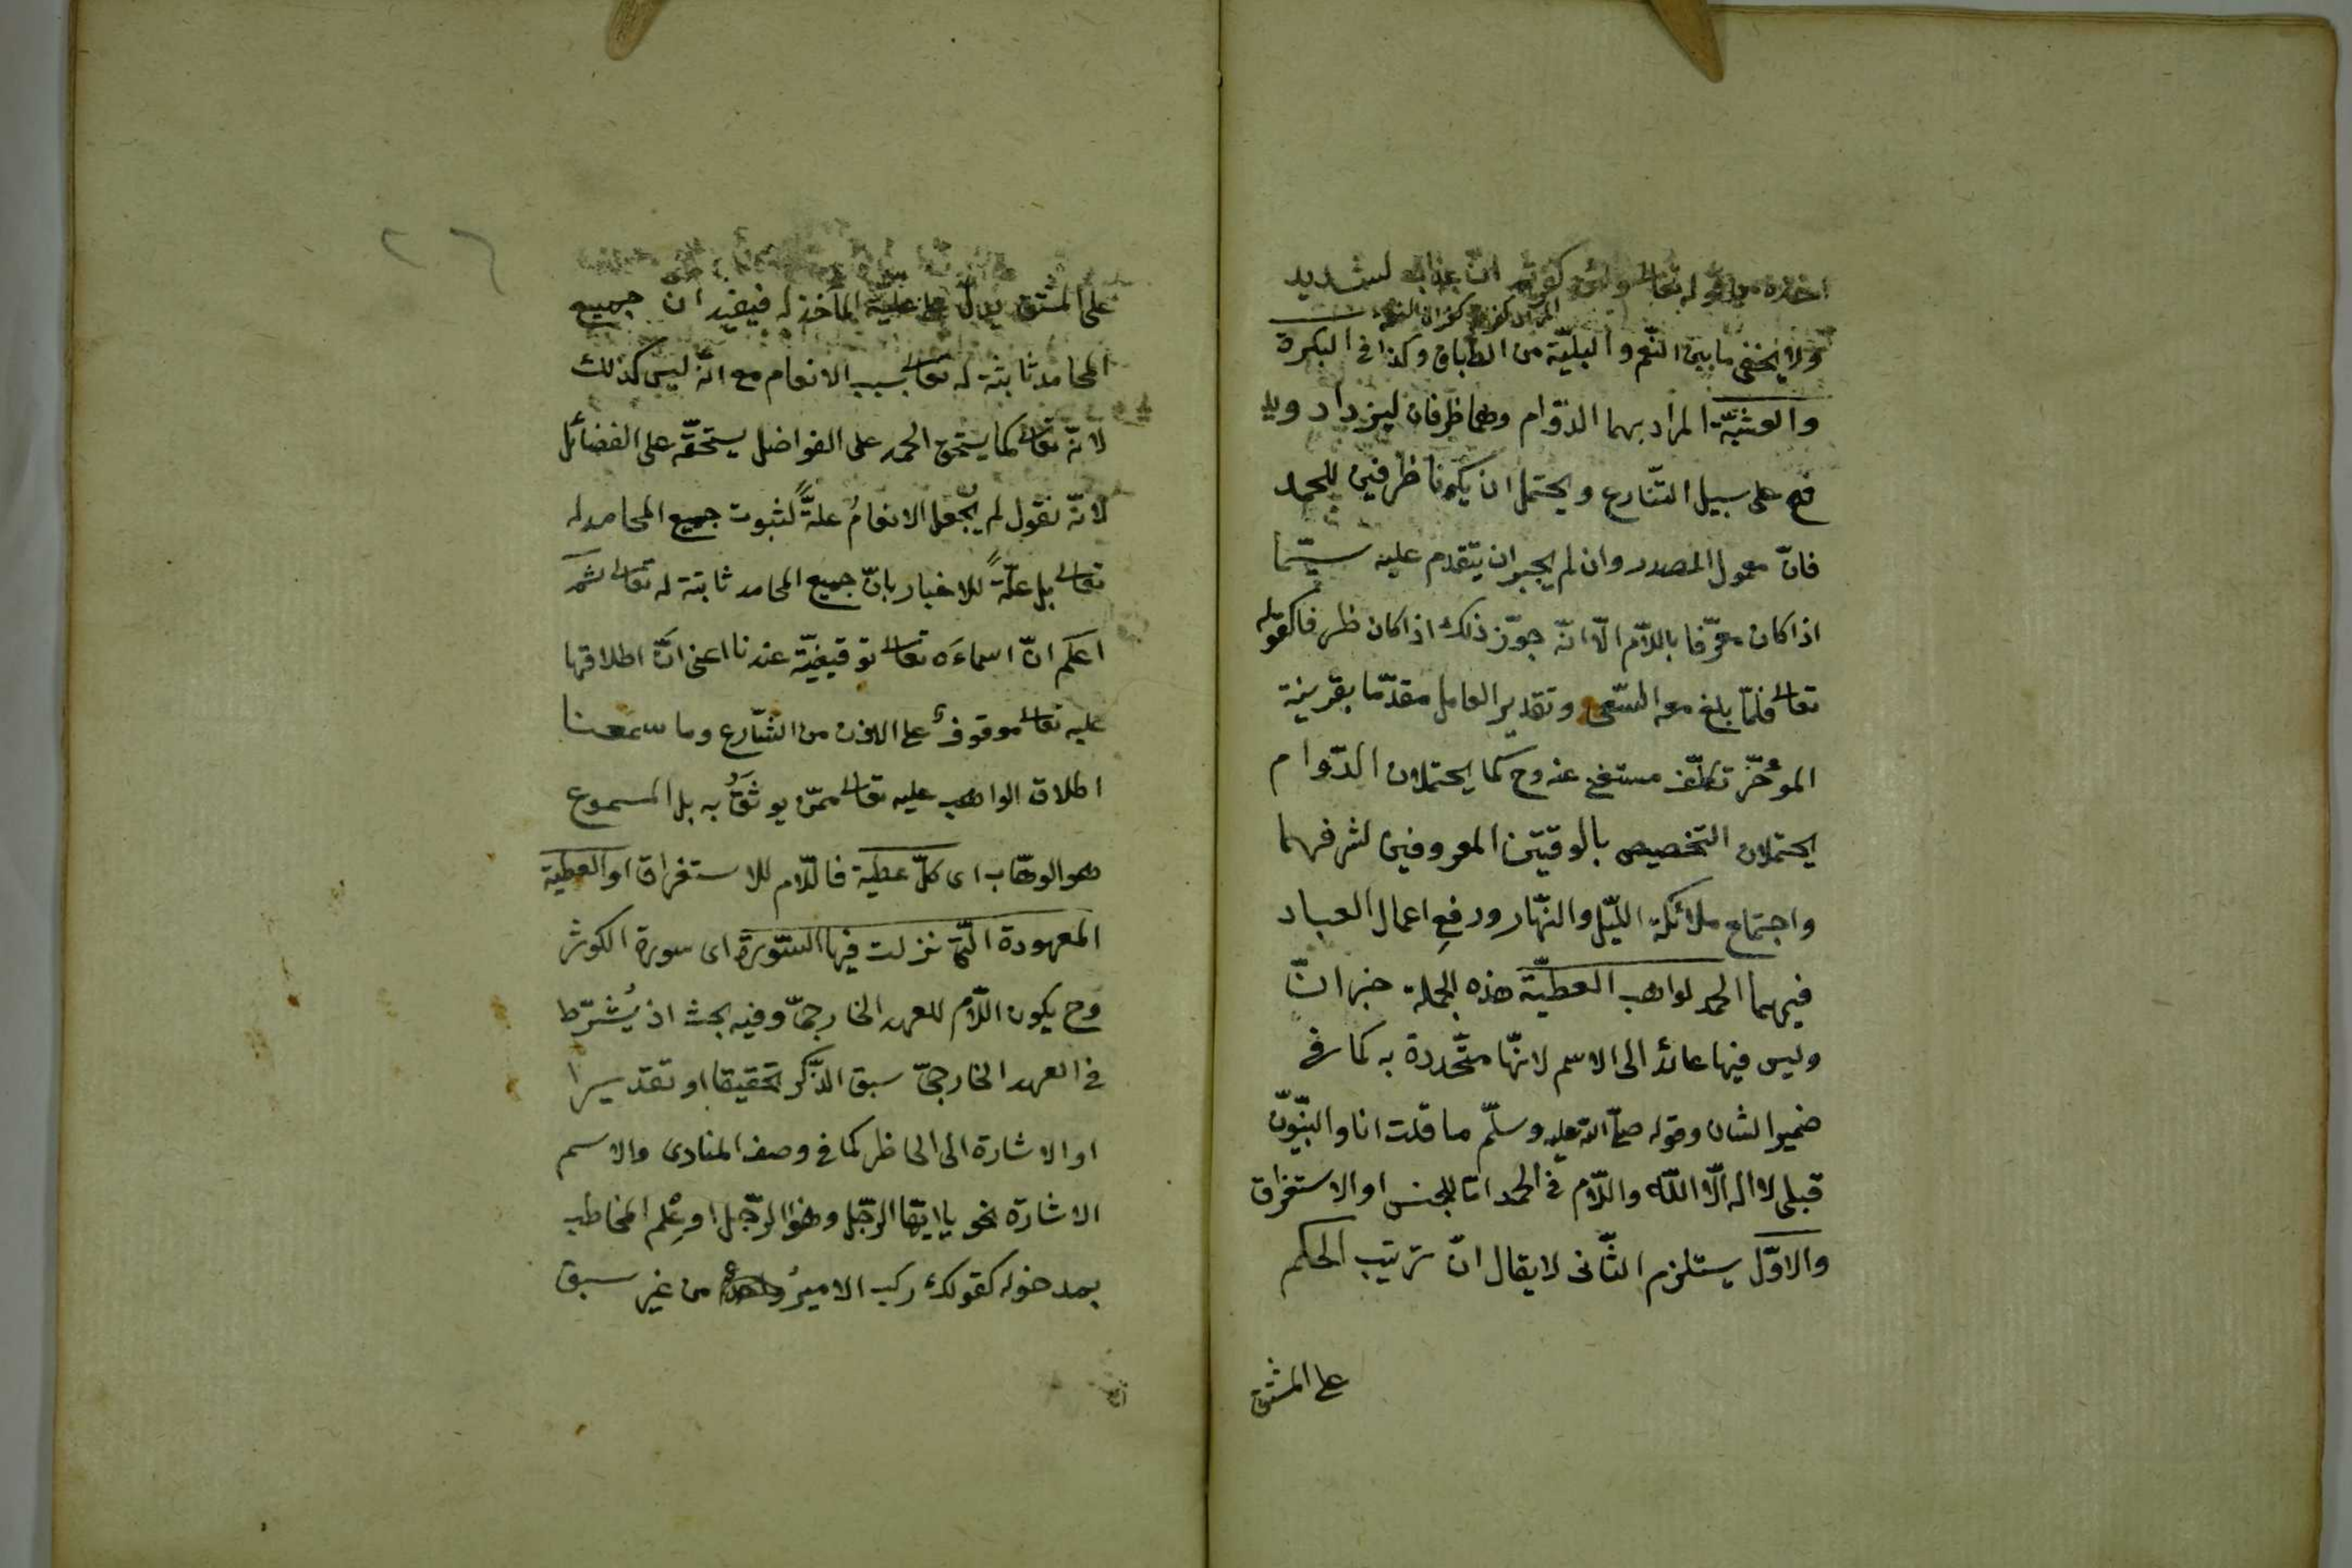 اخذه من قوله تعالى ولئن كفرتم ان عذابي لشديد
المراد كفرتم كفران النعمة
ولا يخفى ما بين النّعم والبليّة من الطباق وكذا في البكرة
والعشيّة المراد بهما الدّوام وهما ظرفان ليزداد
على سبيل التّنازع ويحتمل ان يكونا ظرفين للحمد
فانّ معمول المصدر وان لم يجز ان يتقدم عليه سيّما
اذا كان معرّفا باللّام الّا انّه جوّز ذلك اذا كان ظرفا كقوله
تعالى فلمّا بلغ معه السّعى وتقدير العامل مقدّما بقرينة
المؤخّر تكلّف مستغنى عنه وح كما يحتملان الدّوام
يحتملان التخصيص بالوقتين المعروفين لشرفهما
واجتماع ملائكة اللّيل والنّهار ورفع اعمال العباد
فيهما الحمد لواهب العطيّة هذه الجملة خبر انّ
وليس فيها عائد الى الاسم لانّها متّحدة به كما في
ضمير الشان وقوله صلّى الله عليه وسلّم ما قلت انا والنّبيّون
قبلى لا اله الّا اللّه واللّام في الحمد امّا للجنس او الاستغراق
والاوّل يستلزم الثّانى لا يقال انّ ترتيب الحكم
على المشتق
٢٦
على المشتق يدلّ على علية المأخذ له فيفيد ان جميع
المحامد ثابتة له تعالى بسبب الانعام مع انّه ليس كذلك
لانّه تعالى كما يستحق الحمد على الفواضل يستحقّه على الفضائل
لانّه نقول لم يجعل الانعامُ علةً لثبوت جميع المحامد له
تعالى بل علّةً للاخبار بانّ جميع المحامد ثابتة له تعالى ثمّ
اعلم انّ اسماءَه تعالى توقيفيّة عندنا اعنى انّ اطلاقها
عليه تعالى موقوف على الاذن من الشّارع وما سمعنا
اطلاق الواهب عليه تعالى ممّن يوثَقُ به بل المسموع
هو الوهّاب اى كلّ عطية فاللّام للاستغراق او العطية
المعهودة الّتى نزلت فيها السّورة اى سورة الكوثر
وح يكون اللّام للعهد الخارجىّ وفيه بحث اذ يُشترط
في العهد الخارجىّ سبق الذّكر تحقيقا او تقديرا
او الاشارة الى الحاظر كما في وصف المنادى والاسم
الاشارة نحو يا ايّها الرّجل وهذا الرّجل او عِلم المخاطب
بمدخوله كقولك ركب الاميرُ من غير سبق